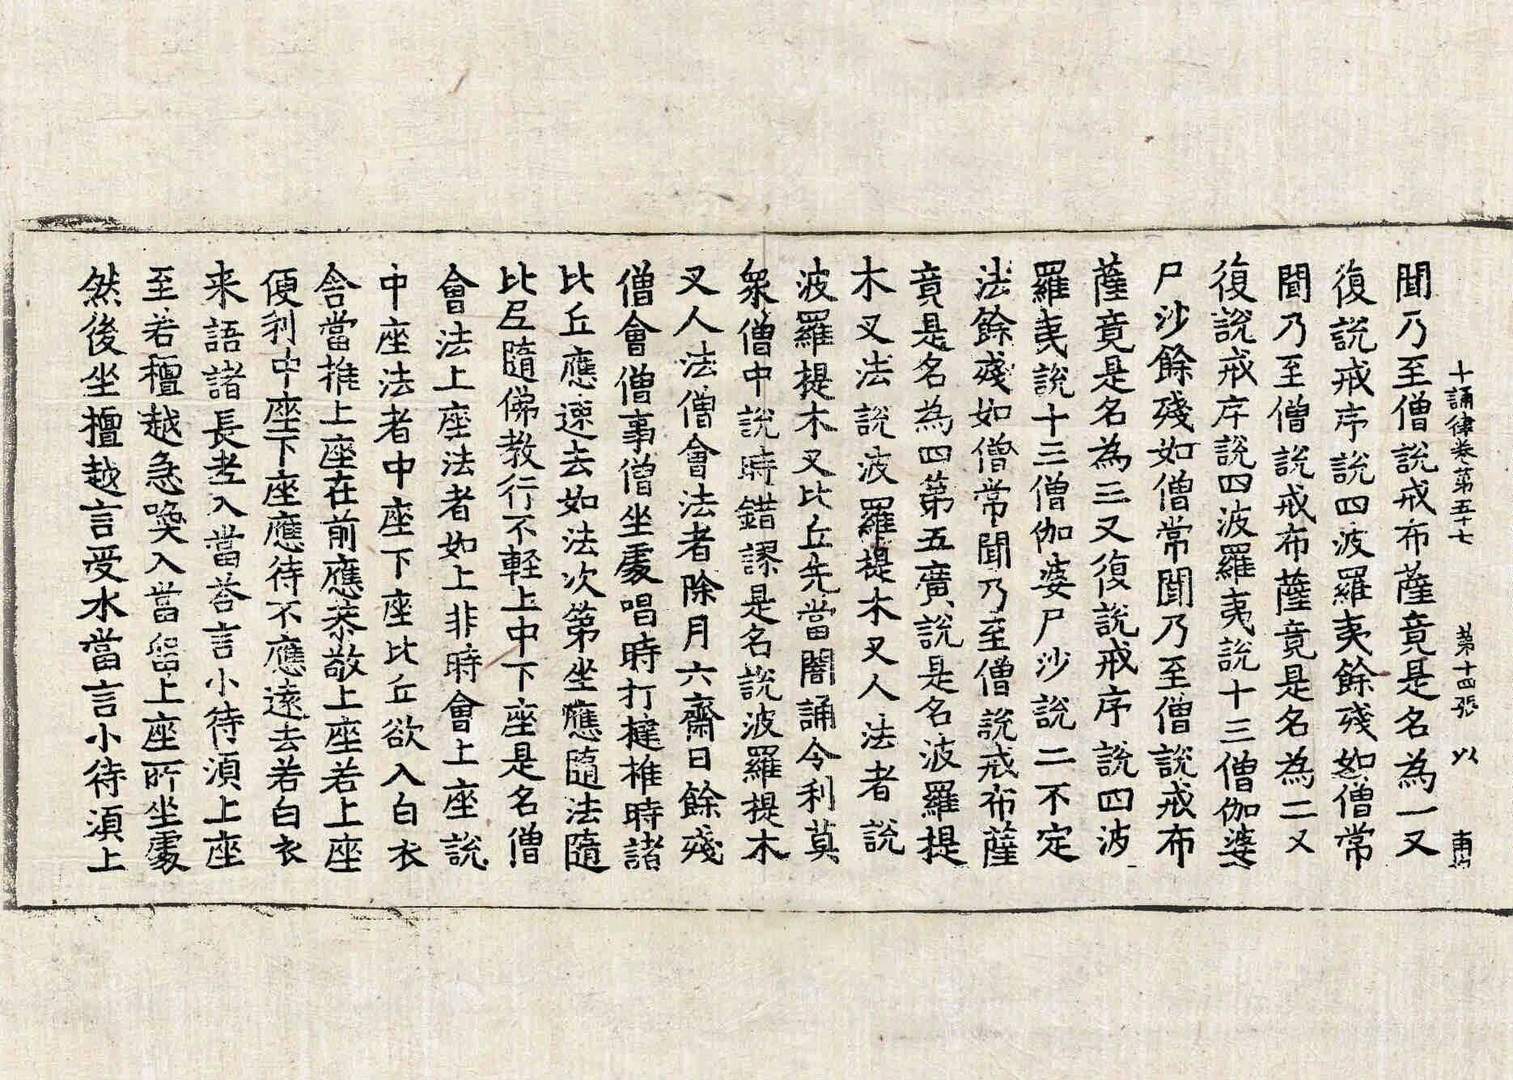 十誦律卷第五十七 第十四張 以
聞乃至僧說戒布薩竟是名為一又
復說戒序說四波羅夷餘殘如僧常
聞乃至僧說戒布薩竟是名為二又
復說戒序說四波羅夷說十三僧伽婆
尸沙餘殘如僧常聞乃至僧說戒布
薩竟是名為三又復說戒序說四波
羅夷說十三僧伽婆尸沙說二不定
法餘殘如僧常聞乃至僧說戒布薩
竟是名為四第五廣說是名波羅提
木叉法說波羅提木叉人法者說
波羅提木叉比丘先當闇誦令利莫
衆僧中說時錯謬是名說波羅提木
叉人法僧會法者除月六齋日餘殘
僧會僧事僧坐處唱時打揵椎時諸
比丘應速去如法次第坐應隨法隨
比尼隨佛教行不輕上中下座是名僧
會法上座法者如上非時會上座說
中座法者中座下座比丘欲入白衣
舍當推上座在前應恭敬上座若上座
便利中座下座應待不應遠去若白衣
来語諸長老入當荅言小待湏上座
至若檀越急喚入當留上座所坐處
然後坐檀越言受水當言小待湏上